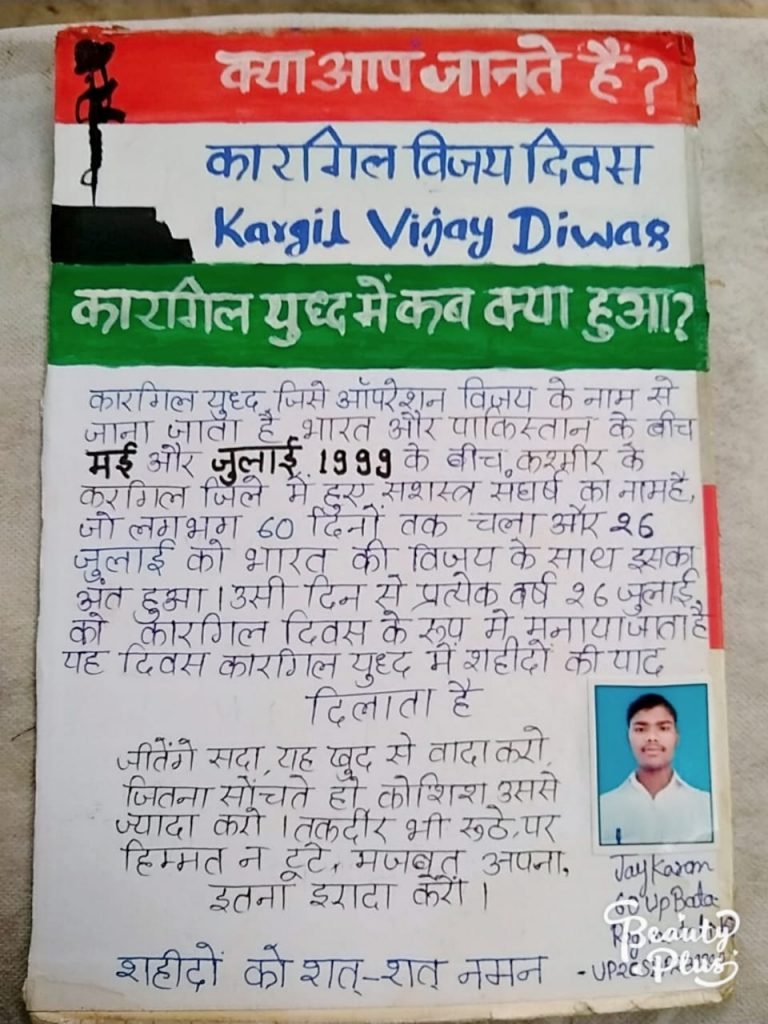 क्या आप जानते हैं?
कारगिल विजय दिवस
Kargil Vijay Diwas
कारगिल युध्द में कब क्या हुआ?
कारगिल युध्द जिसे ऑपरेशन विजय के नाम से
जाना जाता है, भारत और पाकिस्तान के बीच
मई और जुलाई 1999 के बीच कश्मीर के
करगिल जिले में हुए सशस्त्र संघर्ष का नाम है,
जो लगभग 60 दिनों तक चला और 26
जुलाई को भारत की विजय के साथ इसका
अंत हुआ । उसी दिन से प्रत्येक वर्ष 26 जुलाई
को कारगिल दिवस के रूप मे मनाया जाता है
यह दिवस कारगिल युध्द में शहीदों की याद
दिलाता है
जीतेंगे सदा, यह खुद से वादा करो,
जितना सोंचते हो कोशिश उससे
ज्यादा करो । तकदीर भी रूठे, पर
हिम्मत न टूटे, मजबूत अपना,
इतना इरादा करो ।
शहीदों को शत्-शत् नमन
Jay Karan
60 Up Bata
Beauty
Plus